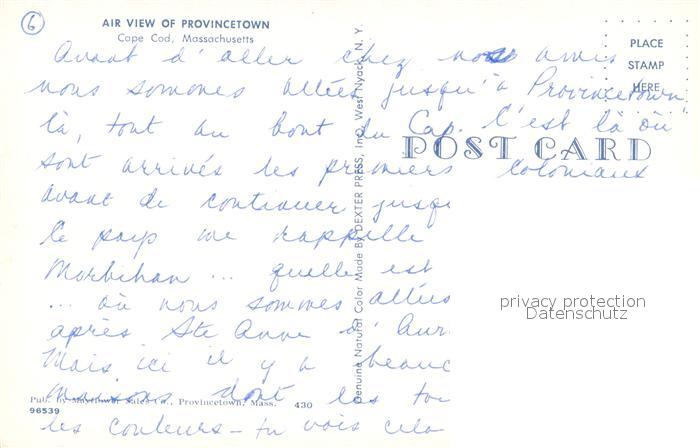 6
AIR VIEW OF PROVINCETOWN
Cape Cod, Massachusetts
PLACE
STAMP
HERE
POST CARD
Avant d'aller chez nos amis
nous sommes allées jusqu'à Provincetown
là, tout au bout du Cap. C'est là où
sont arrivés les premiers coloniaux
avant de continuer jusq
le pays me rappelle
Morbihan ... quelle est
... où nous sommes allées
après Ste Anne d'Aur
Mais ici il y a beauc
maisons dont les toi
les couleurs - tu vois cela
Genuine Natural Color Made By DEXTER PRESS, Inc., West Nyack, N. Y.
privacy protection
Datenschutz
Pub. by Mayflower Sales Co., Provincetown, Mass. 430
96539